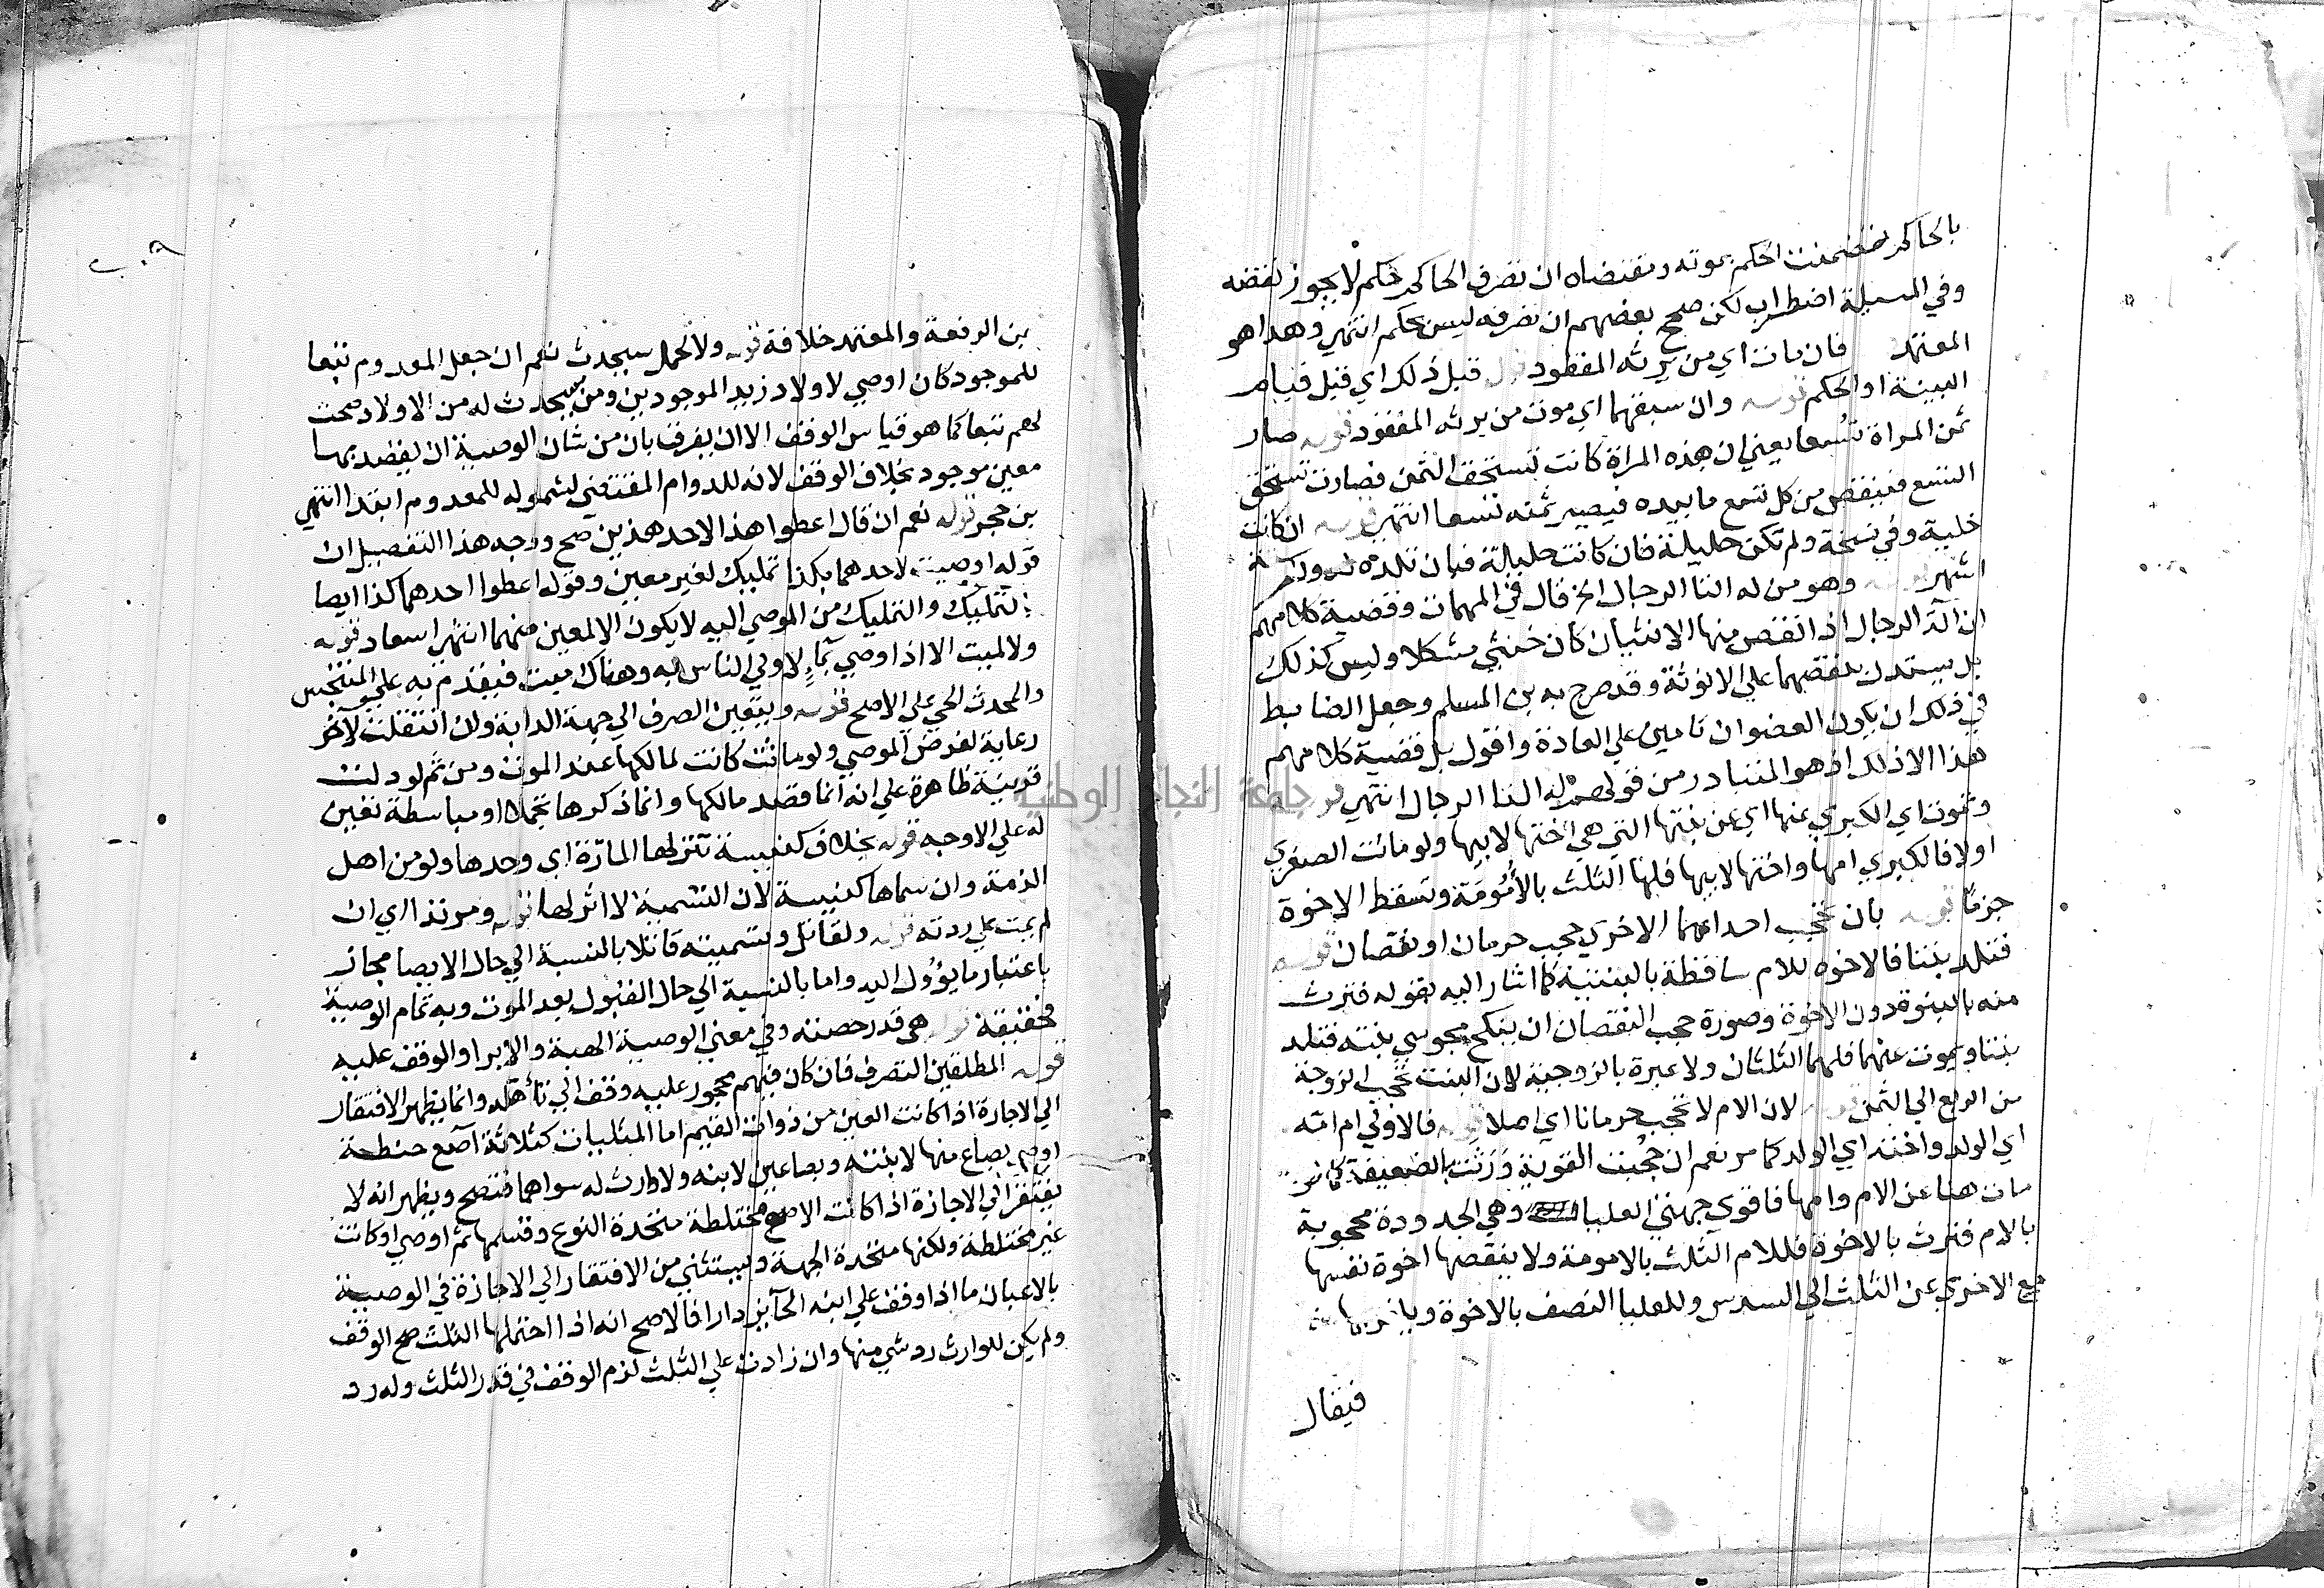 بالحاكم فتضمنت الحكم بموته ومقتضاه ان تصرف الحاكم حكم لا يجوز نقضه
وفي المسيلة اضطراب لكن صحح بعضهم ان تصرفه ليس بحكم انتهي وهذا هو
المعتمد فان مات اي من يرثه المفقود قوله قبل ذلك اي قبل قيام
البينة او الحكم قوله وان سبقهما اي موت من يرثه المفقود قوله صار
ثمن المراة تسعا يعني ان هذه المراة كانت تستحق الثمن فصارت تستحق
التسع فينقص من كل تسع ما بيده فيصير ثمنه تسعا انتهي قوله ان كانت
خلية وفي نسخة ولم تكن حليلة فان كانت حليلة فبان تلده لدون
اشهر قوله وهو من له التا الرجال الخ قال في المهمات وقضية كلامهم
ان آلة الرجال اذا نقص منها الانثيان كان خنثي مشكلا وليس كذلك
بل يستدل بنقصهما علي الانوثة وقد صرح به بن المسلم وجعل الضابط
في ذلك ان يكون العضوان تامين علي العادة واقول بل قضية كلامهم
هذا الا ذلك اذ هو المتبادر من قولهم له التا الرجال انتهي قوله
وتموت اي الكبري عنها اي عن بنتها التي هي اختها لابيها ولو ماتت الصغري
اولا فالكبري امها واختها لابيها فلها الثلث بالأمومة وتسقط الاخوة
جزمًا قوله بان تحجب احداهما الاخري حجب حرمان او نقصان قوله
فتلد بنتا فالاخوه للام ساقطة بالبنتية كما اشار اليه بقوله فترث
منه بالبنوة دون الاخوة وصورة حجب النقصان ان ينكح مجوسي بنته فتلد
بنتا ويموت عنهما فلهما الثلثان ولا عبرة بالزوجية لان البنت تحجب الزوجة
من الربع الي الثمن قوله لان الام لا تحجب حرمانا اي اصلا قوله فالاولي ام امه
اي الولد واخته اي الولد كما مر نعم ان حُجبت القوية وَرَثت بالضعيفة كما لو
مات هنا عن الام وامها فاقوي جهتي العليا وهي الجدودة محجوبة
بالام فترث بالاخوة فللام الثلث بالامومة ولا ينقصها اخوة نفسها
مع الاخري عن الثلث الي السدس وللعليا النصف بالاخوة
فيقال
بن الرفعة والمعتمد خلافة قوله ولا لحمل سيحدث نعم ان جعل المعدوم تبعا
للموجود كان اوصي لاولاد زيد الموجودين ومن سيحدث له من الاولاد صحت
لهم تبعا كما هو قياس الوقف الا ان يفرق بان من شان الوصية ان يقصد بها
معين موجود بخلاف الوقف لانه للدوام المقتضي لشموله للمعدوم ابتدا انتهي
بن حجر قوله نعم ان قال اعطوا هذا لاحد هذين صح ووجه هذا التفصيل ان
قوله اوصيت لاحدهما بكذا تمليك لغير معين وقوله اعطوا احدهما كذا ايصا
بتمليك والتمليك من الموصي اليه لا يكون الا لمعين منهما انتهي اسعاد قوله
ولا لميت الا اذا اوصي بماءٍ لاولي الناس به وهناك ميت فيقدم به علي المتنجس
والمحدث الحي علي الاصح قوله ويتعين الصرف الي جهة الدابة وان انتقلت لآخر
رعاية لغرض الموصي ولو ماتت كانت لمالكها عند الموت ومن ثم لو دلت
قرينة ظاهرة علي انه انما قصد مالكها وانما ذكرها تجملا او مباسطة تعين
له علي الاوجه قوله بخلاف كنيسة تنزلها المارّة اي وحدها ولو من اهل
الذمة وان سماها كنيسة لان التسمية لا اثر لها قوله ومرتدا اي ان
لم يمت علي ردته قوله ولقاتل وتسميته قاتلا بالنسبة الي حال الايصا مجاز
باعتبار ما يؤول اليه واما بالنسبة الي حال القبول بعد الموت وبه تمام الوصية
فحقيقة قوله هي قدر حصته وفي معني الوصية الهبة والابرا والوقف عليه
قوله المطلقين التصرف فان كان فيهم محجور عليه وقف الي تأهله وانما يظهر الافتقار
الي الاجارة اذا كانت العين من ذوات القيم اما المثليات كثلاثة آصع حنطة
اوصي بصاع منها لابنته وبصاعين لابنه ولا وارث له سواهما فتصح ويظهر انه لا
يفتقر الي الاجازة اذا كانت الاصع مختلطة متحدة النوع وقسمها ثم اوصي او كانت
غير مختلطة ولكنها متحدة الجهة ويستثني من الافتقار الي الاجازة في الوصية
بالاعيان ما اذا وقف علي ابنه الحآيز دارا فالاصح انه اذا احتملها الثلث صح الوقف
ولم يكن للوارث رد شي منها وان زادت علي الثلث لزم الوقف في قدر الثلث وله رد
جامعة النجاح الوطنية